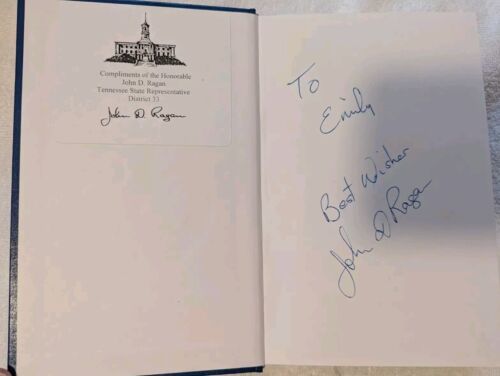 Compliments of the Honorable
John D. Ragan
Tennessee State Representative
District 33
John D. Ragan
To
Emily
Best Wishes
John D Ragan